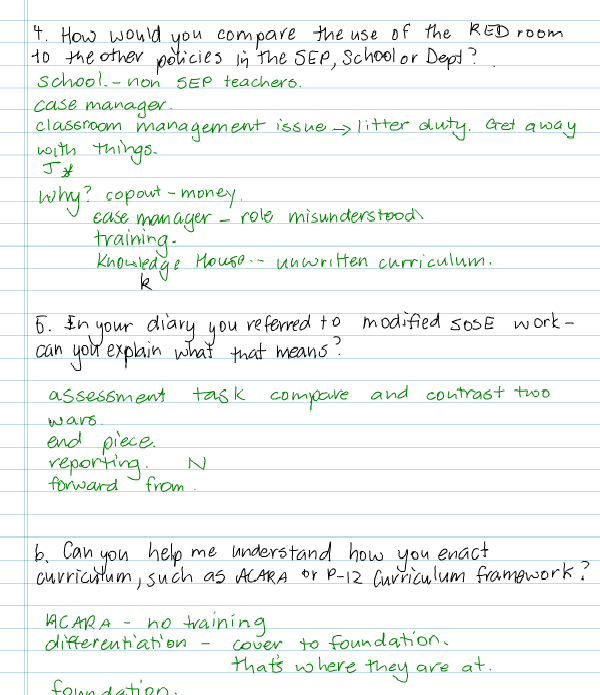 4. How would you compare the use of the RED room
to the other policies in the SEP, School or Dept?
School. - non SEP teachers.
case manager.
classroom management issue → litter duty. Get away
with things.
J*
Why? copout - money.
case manager - role misunderstood
training.
Knowledge House -- unwritten curriculum.
k
5. In your diary you referred to modified SOSE work -
can you explain what that means?
assessment task compare and contrast two
wars.
end piece.
reporting. N
forward from.
6. Can you help me understand how you enact
curriculum, such as ACARA or P-12 Curriculum framework?
ACARA - no training
differentiation - cover to foundation.
that's where they are at.
foundation.